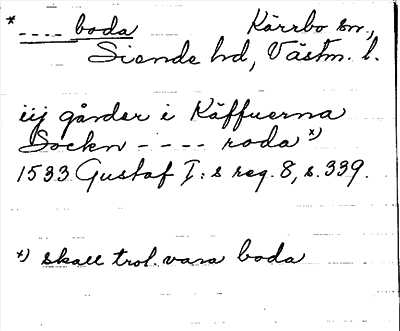 * ---- boda Kärrbo sn.,
Siende hd, Västm. l.
iij gårder i Käffuerna
Sockn ---- roda x)
1533 Gustaf I:s reg. 8, s. 339.
x) skall trol. vara boda